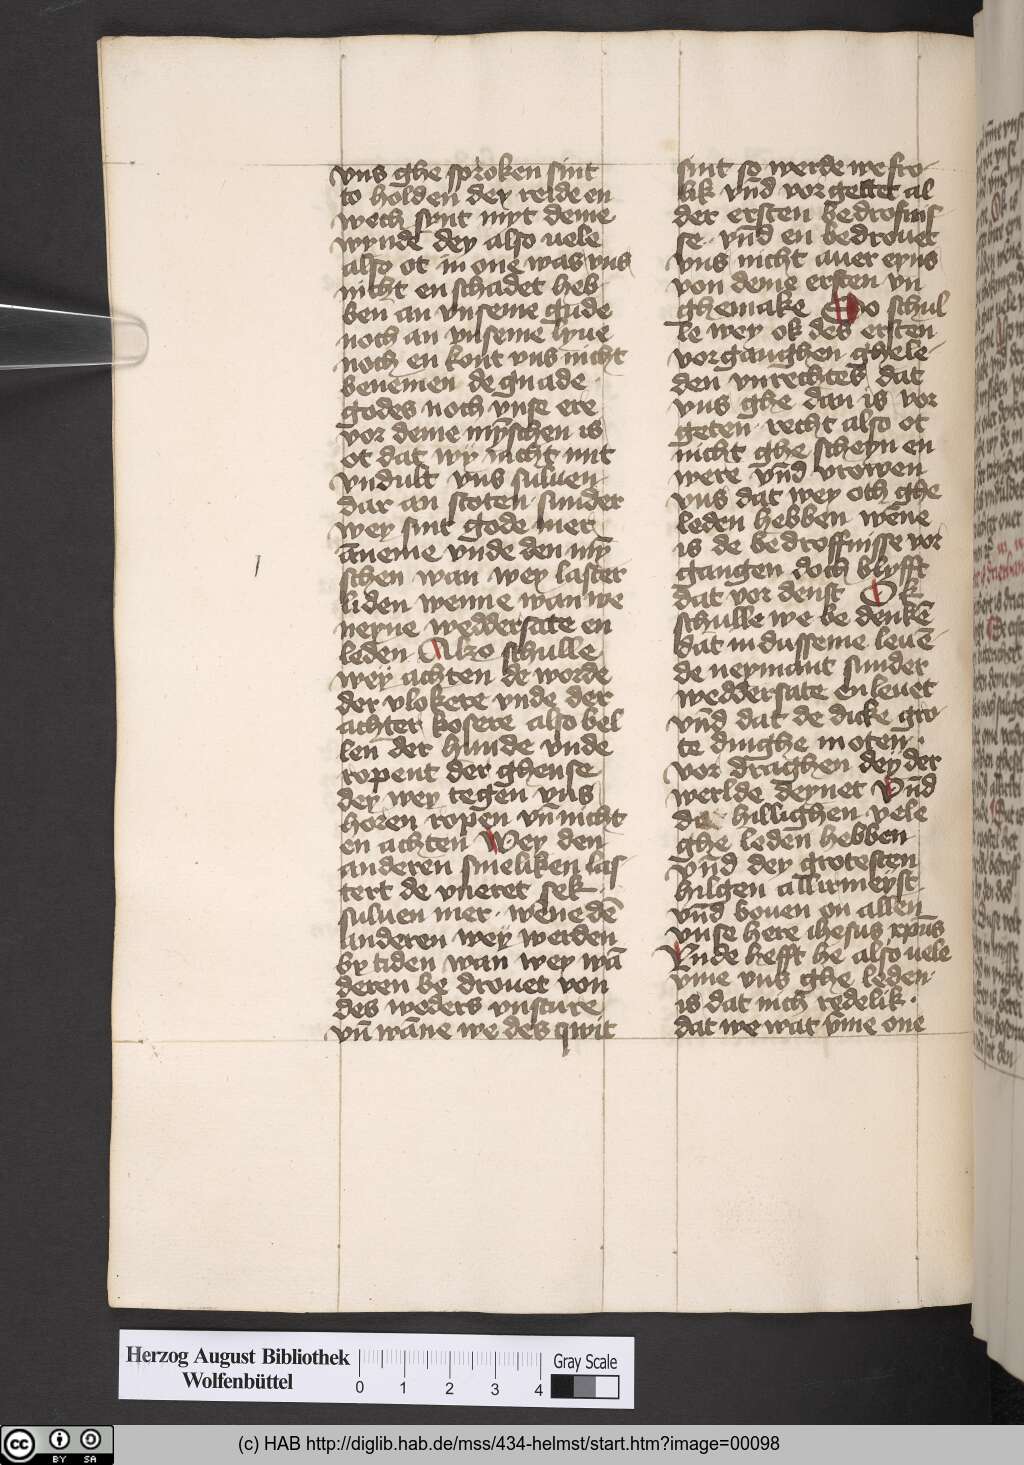 vns ghe sproken sint
to holden dey reide en
wech synt myt deme
wynde dey also uele
also ot in one was vns
nicht en schadet heb
ben an vnseme gude
noch an vnseme lyue
noch en kont vns nicht
benemen de gnade
godes noch vnse ere
vor deme mȳschen is
ot dat wy nicht mit
vndult vns suluen
dar an stoten sunder
wey sint gode mer
āneme vnde den mȳ
schen wan wey laster
liden wenne wan we
neyne weddersate en
leden Alzo schulle
wey achten de worde
der vlokere vnde der
achter kosere also bel
len der hunde vnde
ropent der ghense
dey wey tegen vns
horen ropen vn̄ nicht
en achten Wey den
anderen smeliken las
tert de vneret sek
suluen mer wene dē
anderen wey werden
by tiden wan wey wā
deren be drouet von
des weders vnsture
vn̄ wāne we des qwit
sint so werde we fro
lik vn̄d vor gettet al
der ersten bedrofnis
se vn̄d en bedrouet
vns nicht auer eyns
von deme ersten vn
ghemake So schul
le wey ok des ersten
vorganghen ghele
den vnrechtes dat
vns ghe dan is vor
geten recht also ot
nicht ghe scheyn en
were vn̄d vrowen
vns dat wey och ghe
leden hebben wēne
is de bedroffnisse vor
gangen doch blyfft
dat vor denst Ok
schulle we be denkē
dat in dusseme leuē
de neymant sunder
weddersate en leuet
vn̄d dat de dicke gro
te dinghe moten
vor draghen dey der
werlde deynet Vn̄d
de hillighen vele
ghe leden hebben
vn̄d dey grotesten
hilgen all irmeyst
vn̄d bouen on allen
vnse here ihesus xpūs
Vnde hefft he also uele
vme vns ghe leden
is dat nich redelik
dat we wat vme one
Herzog August Bibliothek
Wolfenbüttel
0 1 2 3 4
Gray Scale
cc BY SA
(c) HAB http://diglib.hab.de/mss/434-helmst/start.htm?image=00098